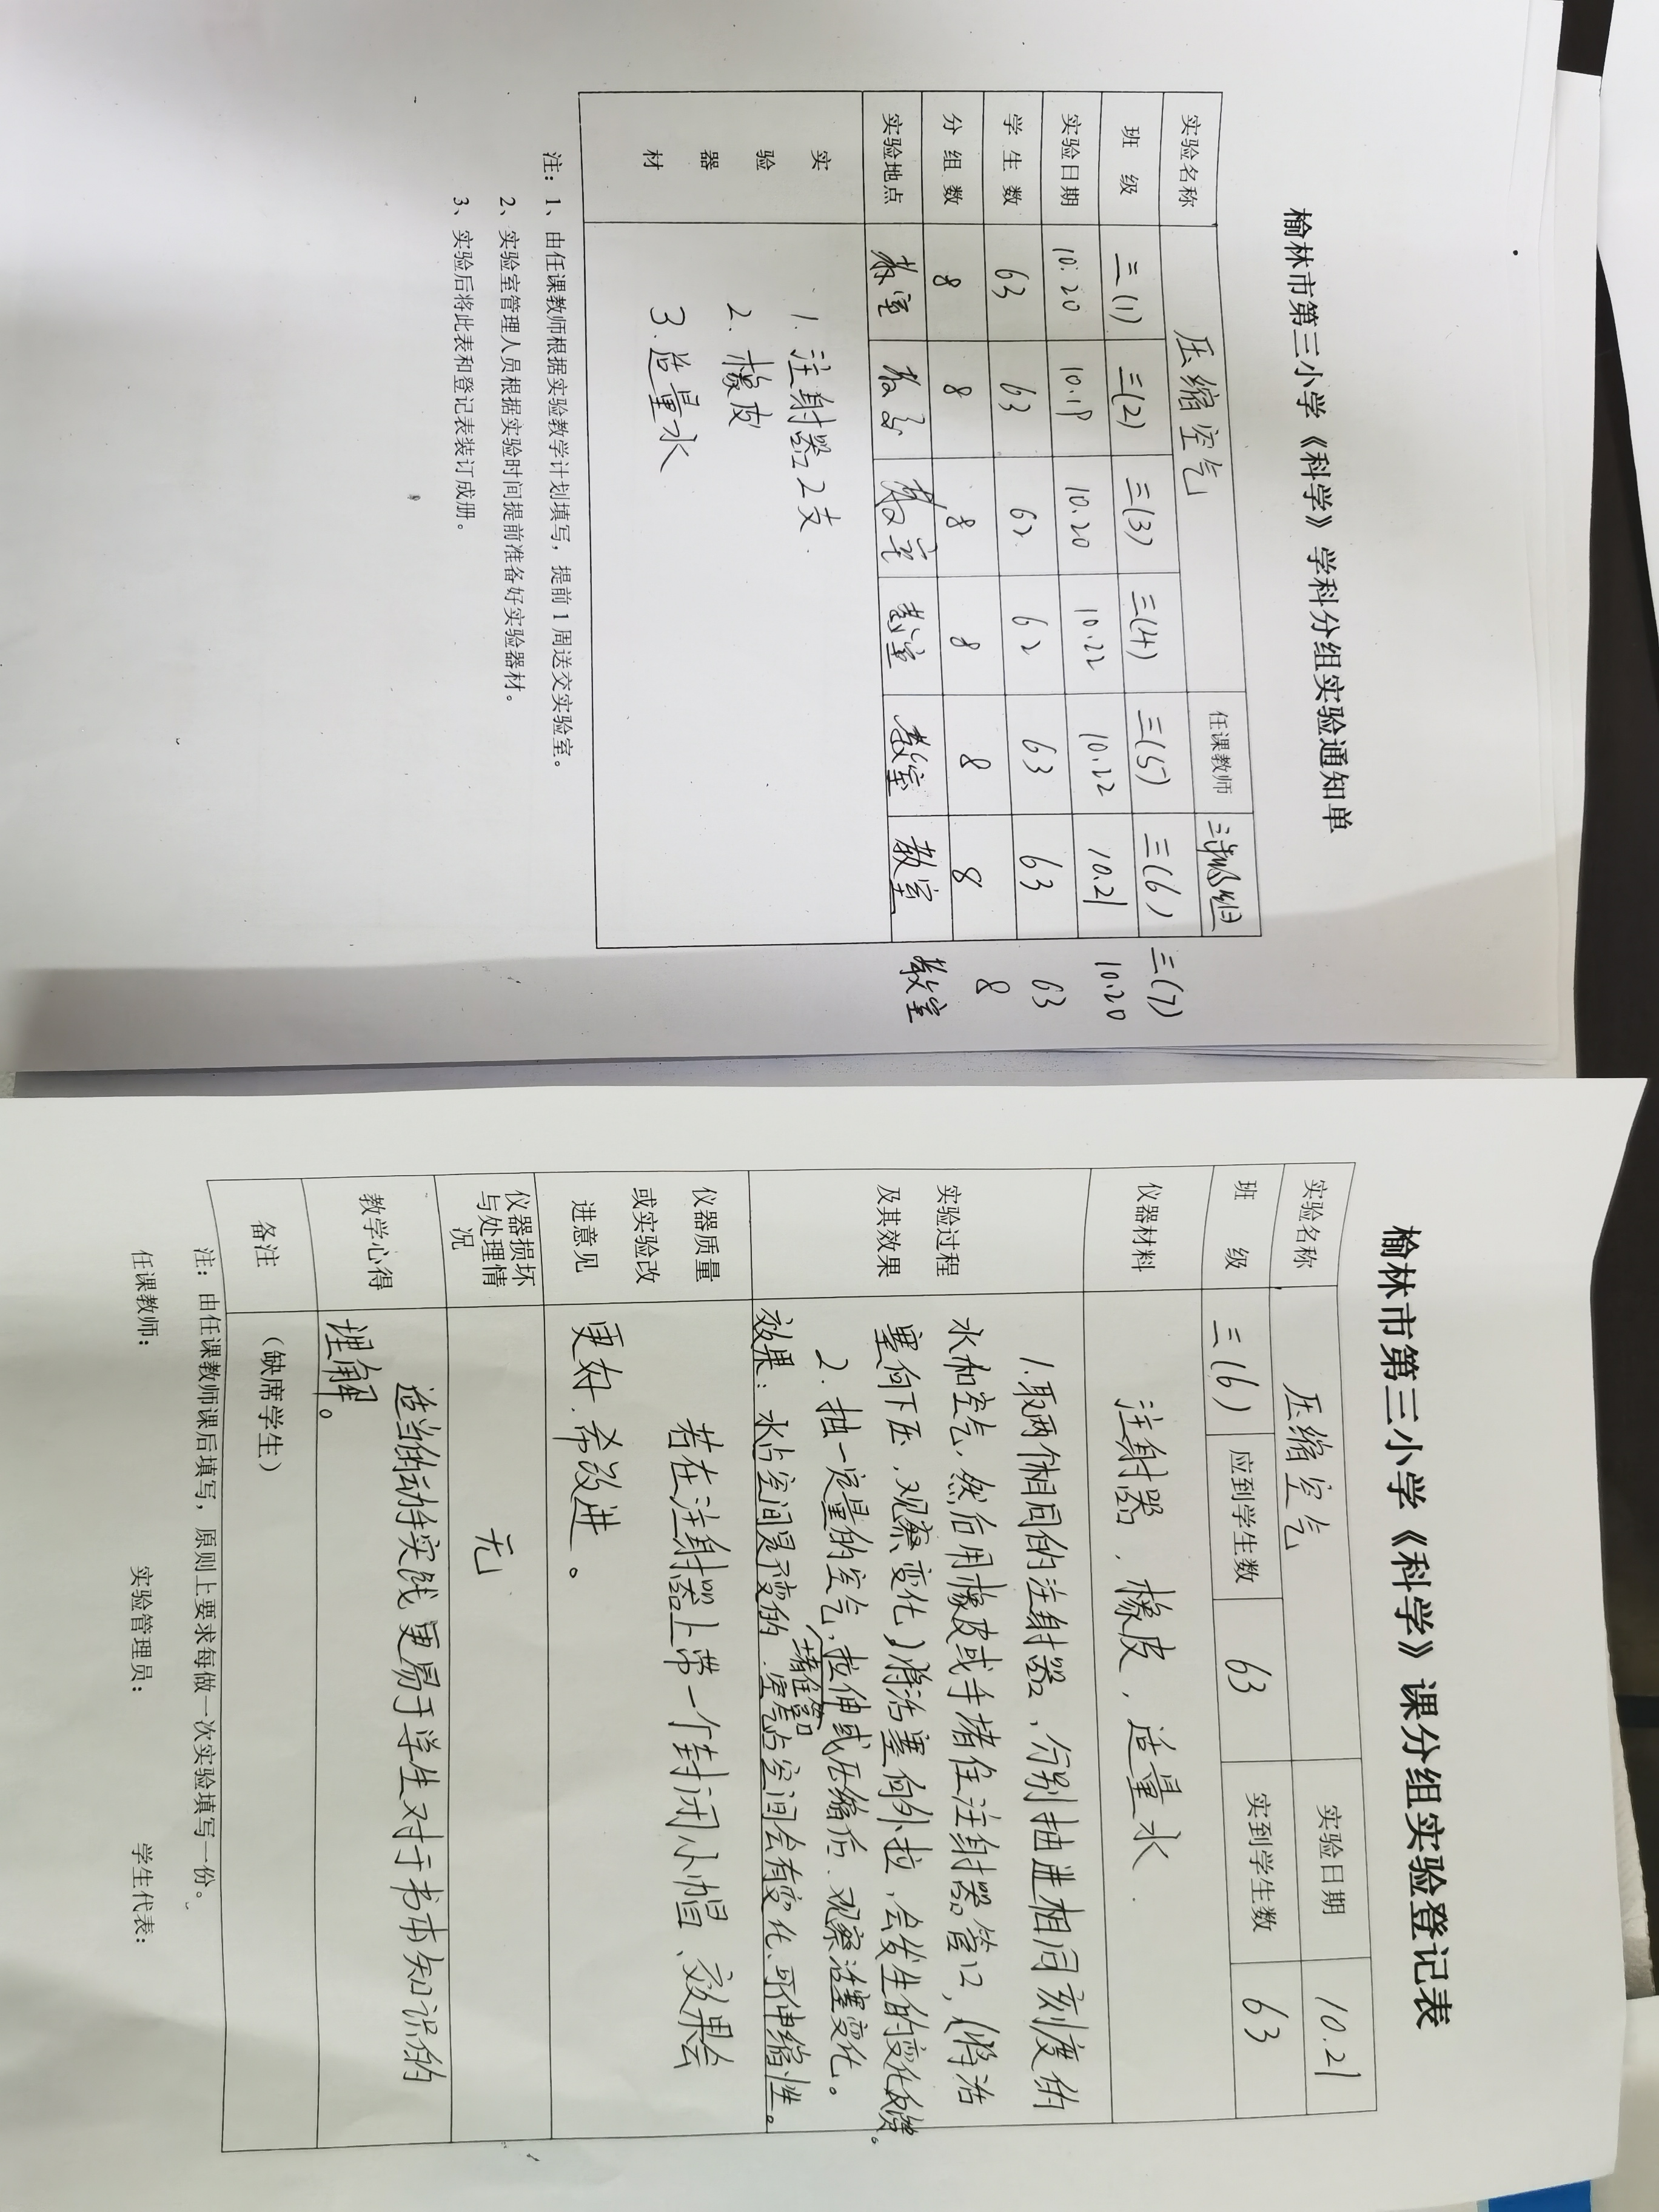 榆林市第三小学《科学》学科分组实验通知单
实验名称 压缩空气 任课教师 三年级组
班 级 三(1) 三(2) 三(3) 三(4) 三(5) 三(6) 三(7)
实验日期 10.20 10.19 10.20 10.22 10.22 10.21 10.20
学 生 数 63 63 62 62 63 63 63
分 组 数 8 8 8 8 8 8 8
实验地点 教室 教室 教室 教室 教室 教室 教室
实 验 器 材
1. 注射器2支.
2. 橡皮
3. 适量水
注：1、由任课教师根据实验教学计划填写，提前1周送交实验室。
2、实验室管理人员根据实验时间提前准备好实验器材。
3、实验后将此表和登记表装订成册。
榆林市第三小学《科学》课分组实验登记表
实验名称 压缩空气 实验日期 10.21
班 级 三(6) 应到学生数 63 实到学生数 63
仪器材料 注射器、橡皮、适量水.
实验过程
及其效果
1.取两个相同的注射器、分别抽进相同刻度的
水和空气，然后用橡皮或手堵住注射器管口，(将活
塞向下压，观察变化)将活塞向外拉，会发生的变化
2. 抽一定量的空气，堵住管口拉伸或压缩后、观察活塞变化。
效果：水占空间是不变的.空气占空间会有变化、可伸缩性。
仪器质量
或实验改
进意见
若在注射器上带一个封闭小帽、效果会
更好.希改进。
仪器损坏
与处理情
况
无
教学心得
适当的动手实践更易于学生对于书本知识的
理解。
备注 （缺席学生）
注：由任课教师课后填写，原则上要求每做一次实验填写一份。
任课教师： 实验管理员： 学生代表：